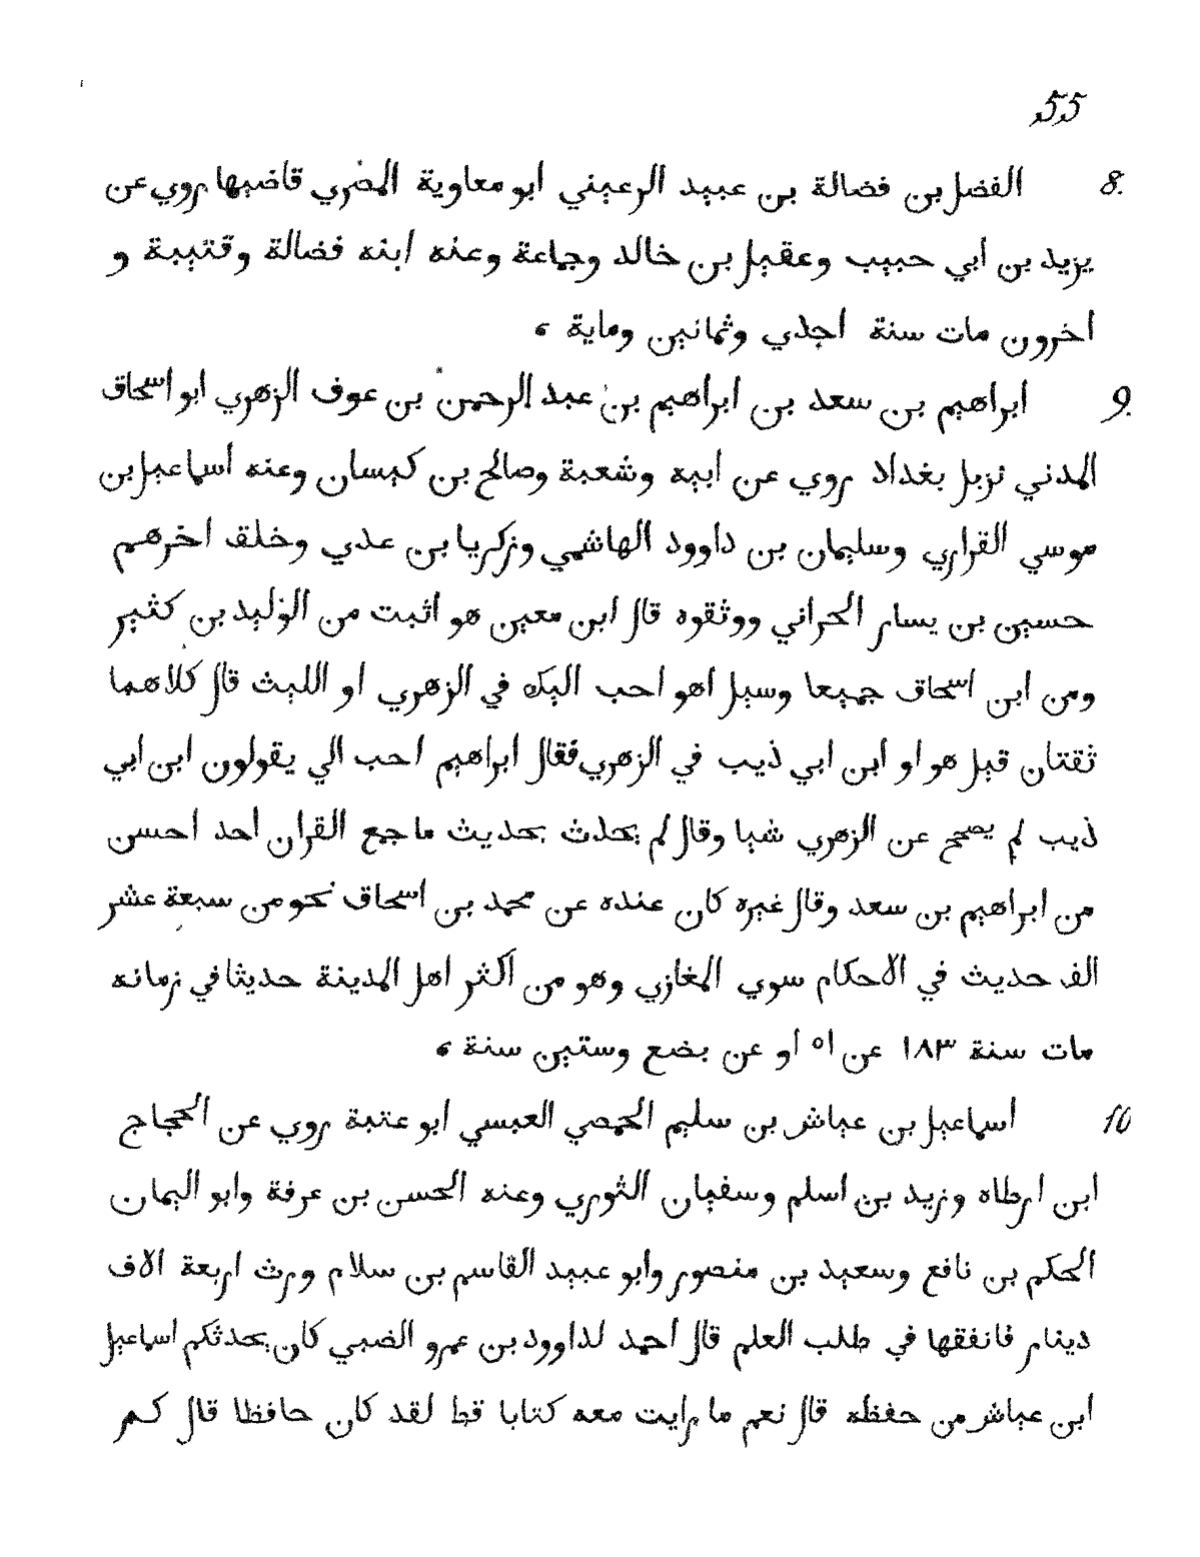 55
8. الفضل بن فضالة بن عبيد الرعيني ابو معاوية المضري قاضيها روي عن
يزيد بن ابي حبيب وعقيل بن خالد وجماعة وعنه ابنه فضالة وقتيبة و
اخرون مات سنة اجدي وثمانين وماية ،
9. ابراهيم بن سعد بن ابراهيم بن عبد الرحمن بن عوف الزهري ابو اسحاق
المدني نزيل بغداد روي عن ابيه وشعبة وصالح بن كيسان وعنه اسماعيل بن
موسي القراري وسليمان بن داوود الهاشمي وزكريا بن عدي وخلق اخرهم
حسين بن يسار الحراني ووثقوه قال ابن معين هو اثبت من الوليد بن كثير
ومن ابن اسحاق جميعا وسيل اهو احب اليك في الزهري او الليث قال كلاهما
ثقتان قيل هو او ابن ابي ذيب في الزهري فقال ابراهيم احب الي يقولون ابن ابي
ذيب لم يصحح عن الزهري شيا وقال لم يحدث بحديث ما جمع القران احد احسن
من ابراهيم بن سعد وقال غيره كان عنده عن محمد بن اسحاق نحو من سبعة عشر
الف حديث في الاحكام سوي المغازي وهو من اكثر اهل المدينة حديثا في زمانه
مات سنة ١٨٣ عن ٥١ او عن بضع وستين سنة ،
10 اسماعيل بن عياش بن سليم الحمصي العبسي ابو عتبة روي عن الحجاج
ابن ارطاه وزيد بن اسلم وسفيان الثوري وعنه الحسن بن عرفة وابو اليمان
الحكم بن نافع وسعيد بن منصور وابو عبيد القاسم بن سلام ورث اربعة الاف
دينار فانفقها في طلب العلم قال احمد لداوود بن عمرو الضبي كان يحدثكم اسماعيل
ابن عياش من حفظه قال نعم ما رايت معه كتابا قط لقد كان حافظا قال كم